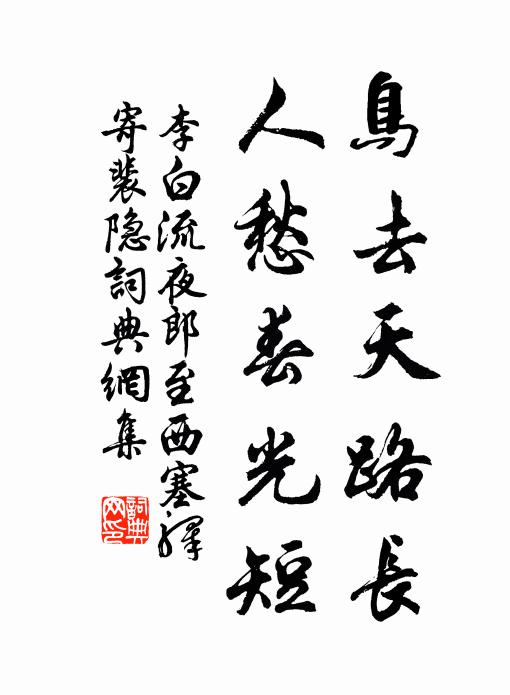 鳥去天路長
人愁春光短
李白流夜郎至西塞驛
寄裴隐詞典網集
詞典網印